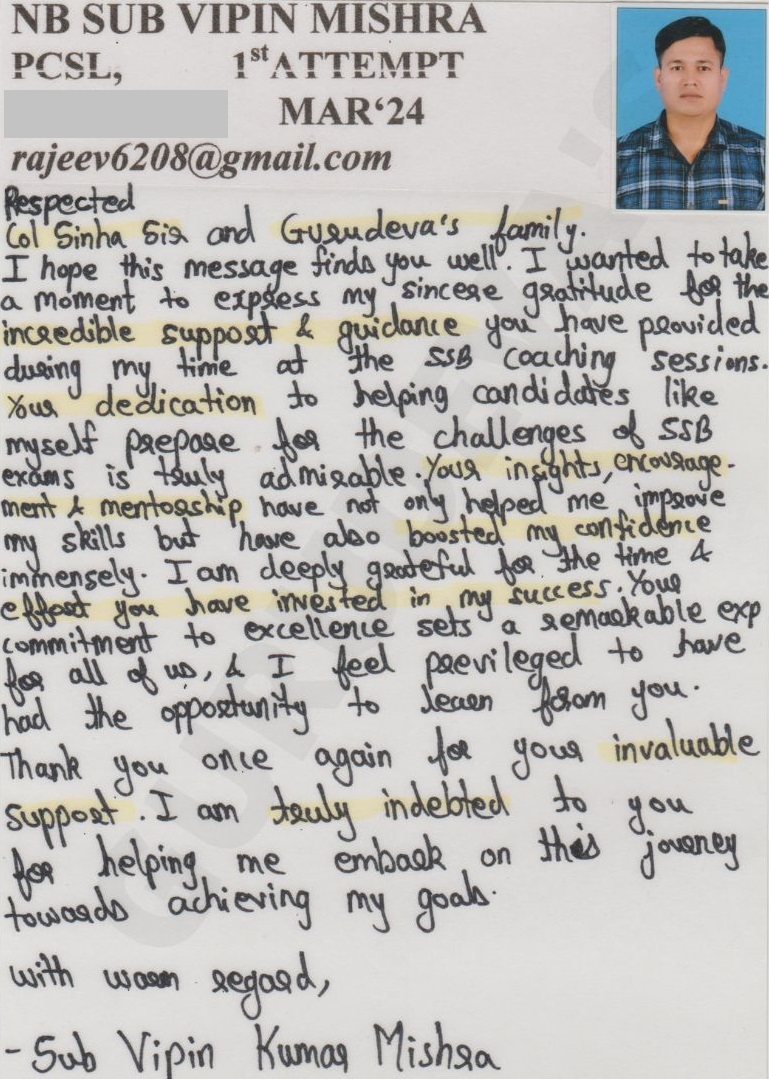 NB SUB VIPIN MISHRA
PCSL, 1st ATTEMPT
MAR‘24
rajeev6208@gmail.com
Respected
Col Sinha Sir and Gurudeva's family.
I hope this message finds you well. I wanted to take
a moment to express my sincere gratitude for the
incredible support & guidance you have provided
during my time at the SSB coaching sessions.
Your dedication to helping candidates like
myself prepare for the challenges of SSB
exams is truly admirable. Your insights, encourage-
ment & mentorship have not only helped me improve
my skills but have also boosted my confidence
immensely. I am deeply grateful for the time &
effort you have invested in my success. Your
commitment to excellence sets a remarkable exp
for all of us, & I feel previleged to have
had the opportunity to learn from you.
Thank you once again for your invaluable
support. I am truly indebted to you
for helping me embark on this jouney
towards achieving my goals.
with warm regard,
- Sub Vipin Kumar Mishra
GURUDEVA'S